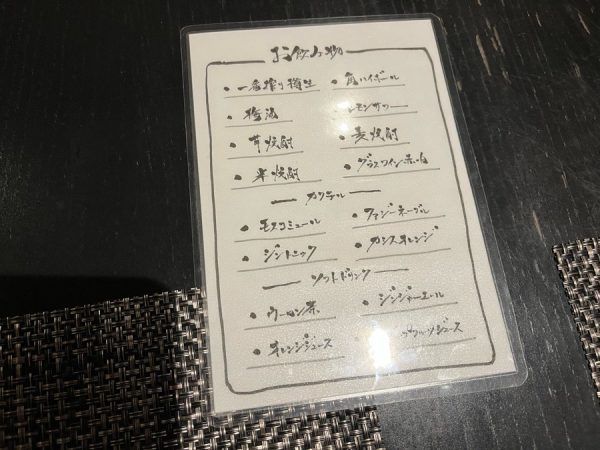 お飲み物
• 一番搾り樽生 • 角ハイボール
• 梅酒 レモンサワー
• 芋焼酎 • 麦焼酎
• 米焼酎 • グラスワイン赤・白
カクテル
• モスコミュール • ファジーネーブル
• ジントニック • カシスオレンジ
ソフトドリンク
• ウーロン茶 • ジンジャーエール
• オレンジジュース グレープフルーツジュース